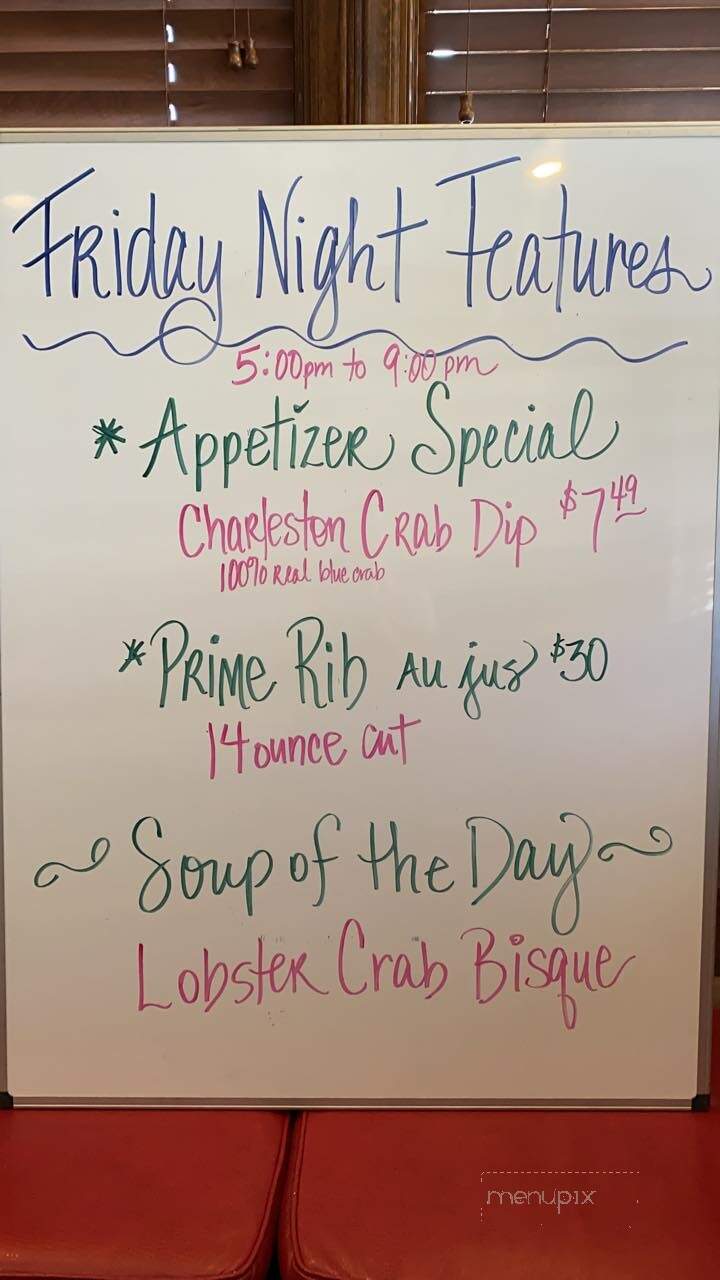 Friday Night Features
5:00pm to 9:00pm
* Appetizer Special
Charleston Crab Dip $7 49
100% Real blue crab
* Prime Rib Au jus $30
14 ounce cut
~ Soup of the Day ~
Lobster Crab Bisque
menupix